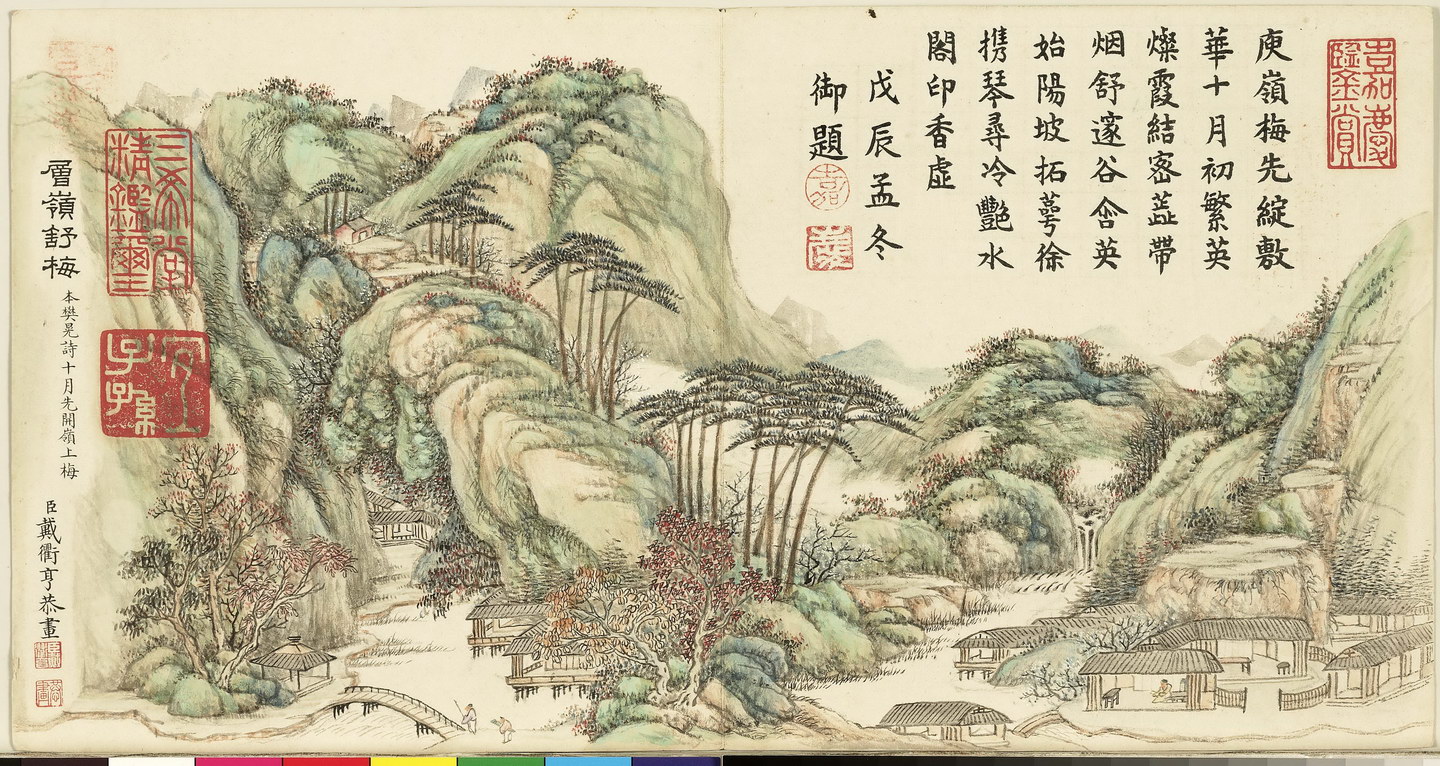 嘉慶鑒賞
庾嶺梅先綻敷
華十月初繁英
燦霞結密蕊帶
烟舒邃谷含英
始陽坡拓萼徐
携琴尋冷艷水
閣印香虛
戊辰孟冬
御題
嘉
慶
層嶺舒梅
本樊晃詩十月先開嶺上梅
臣戴衢亨恭畫
三希堂精鑑璽
宜子孫